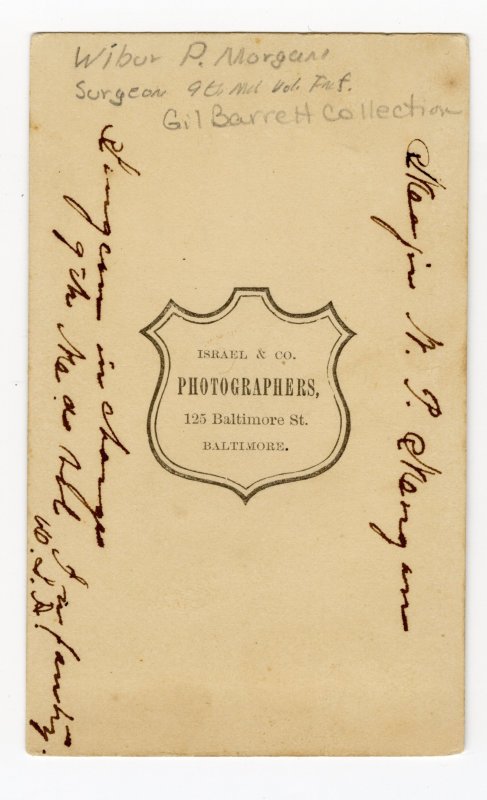 Wibur P. Morgan
Surgeon 9th Md Vol. Inf.
Gil Barrett Collection
Major W. P. Morgan
ISRAEL & CO.
PHOTOGRAPHERS,
125 Baltimore St.
BALTIMORE.
Surgeon in charge
9th Md Vol Infantry.